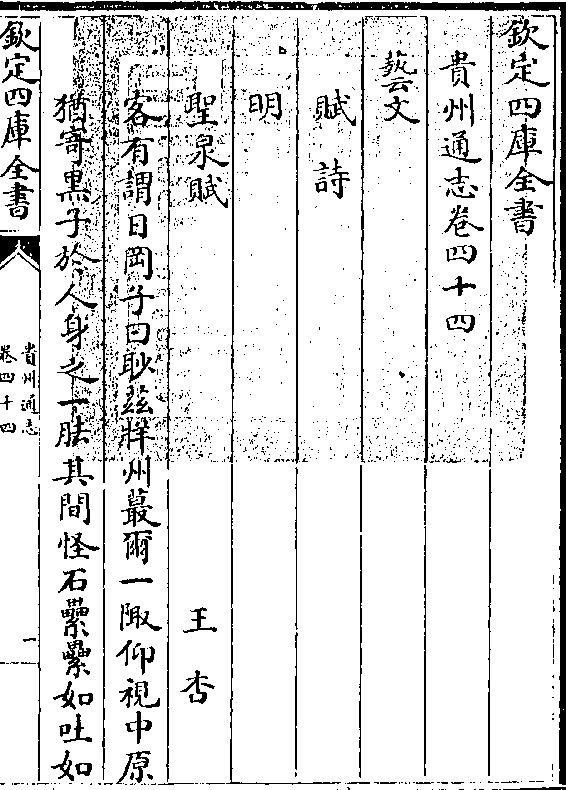 欽定四庫全書
貴州通志卷四十四
藝文
賦詩
明
聖泉賦　王杏
客有謂日岡子曰眇茲牂州蕞爾一陬仰視中原
猶寄黑子於人身之一胠其間怪石纍纍如吐如
欽定四庫全書
貴州通志
卷四十四
一